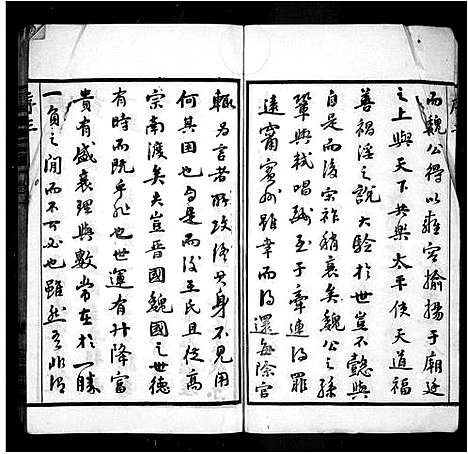 而魏公得以雍容揄揚于廟廷
之上與天下共樂太平使天道福
善禍淫之說大驗於世豈不懿與
自是而後宗祚稍衰矣魏公之孫
鞏與軾唱酬至于牽連得罪
遠竄賓州雖幸而得還每除官
輒為言者所攻終其身不見用
何其困也自是而後王氏且從高
宗南渡矣夫豈晉國魏國之世德
有時而既乎非也世運有升降富
貴有盛衰理與數常在於一勝
一負之間而不可必也雖然吾
序三